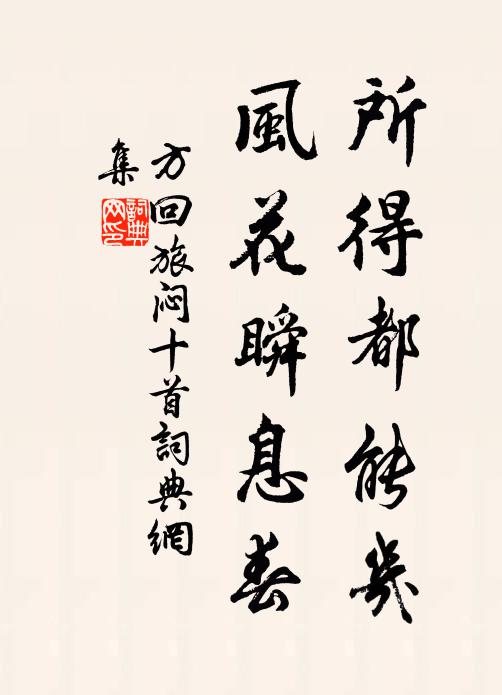 所得都能幾
風花瞬息春
方回旅闷十首詞典網
集
詞典
网印